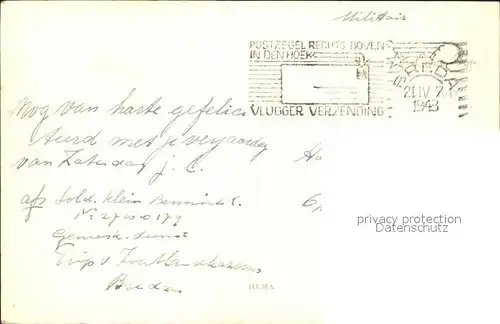 Militair
POSTZEGEL RECHTS BOVEN
IN DEN HOEK
VLUGGER VERZENDING
BREDA
21 IV 7
1943
Nog van harte gefelici
teerd met je verjaardag
van Zaterdag j.l.
Ho
afz Sold. Klein
6
No 27
Geneesk. dienst
Trip v Zoutlandkazerne
Breda
HEMA
privacy protection
www.